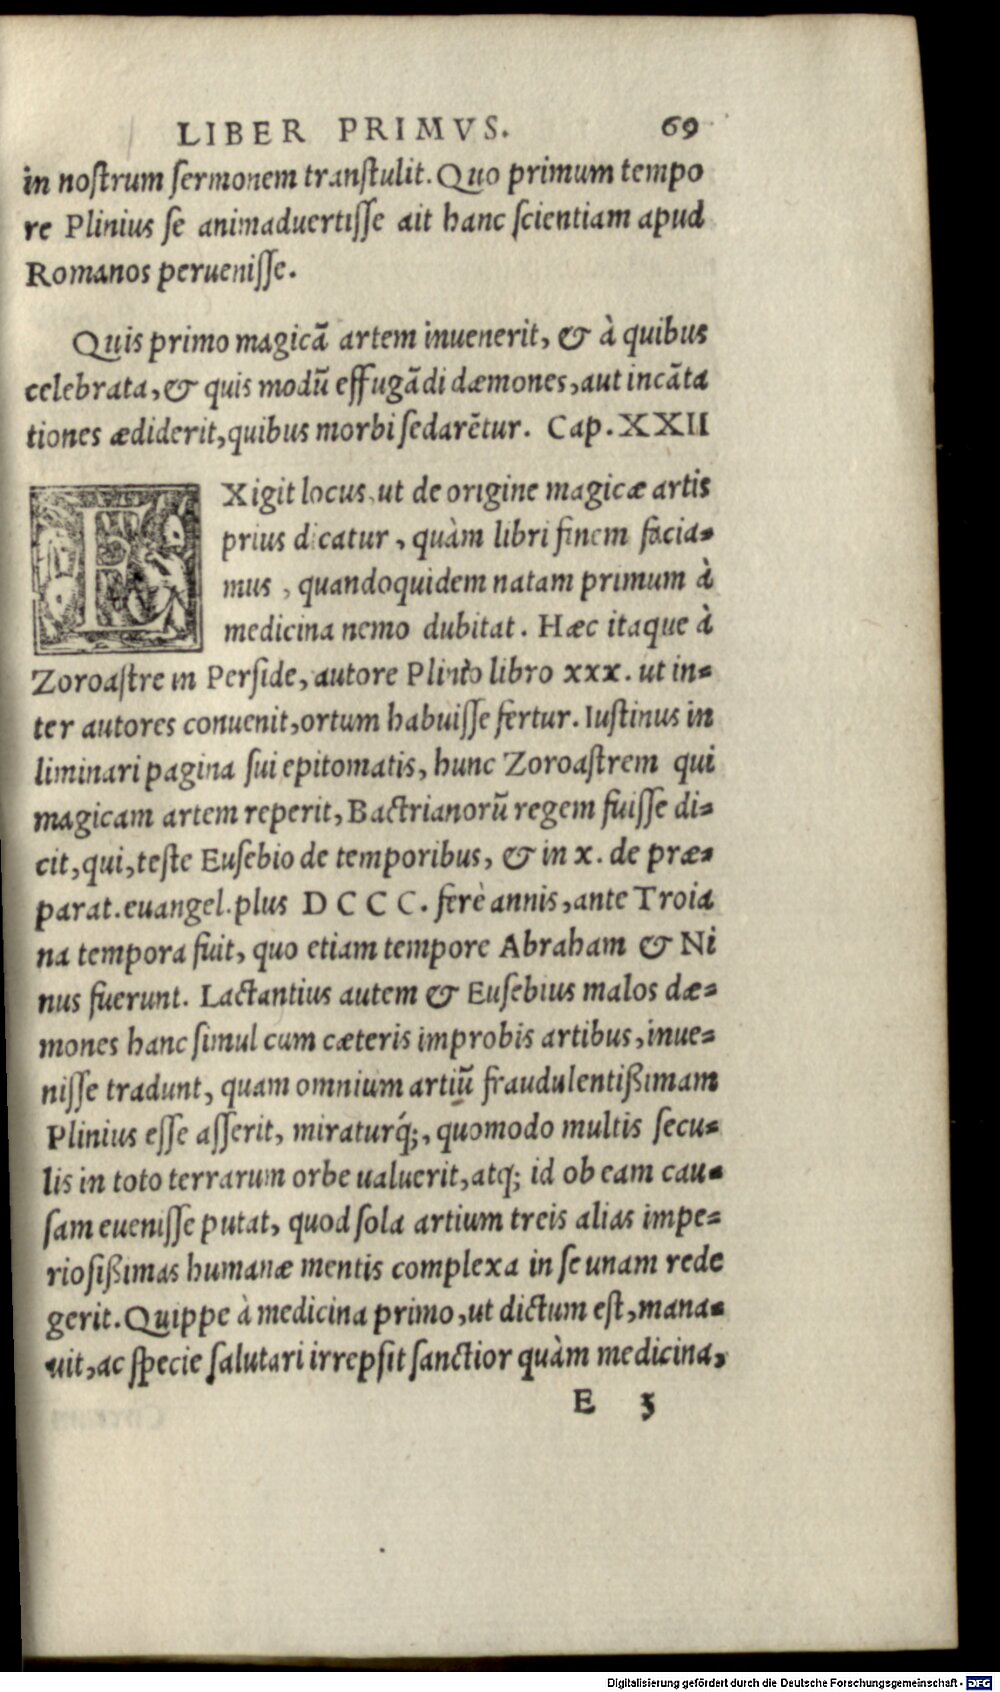 LIBER PRIMVS. 69
in nostrum sermonem transtulit. Quo primum tempo
re Plinius se animaduertisse ait hanc scientiam apud
Romanos peruenisse.
Quis primo magicã artem inuenerit, & à quibus
celebrata, & quis modũ effugãdi dæmones, aut incãta
tiones ædiderit, quibus morbi sedarẽtur. Cap. XXII
EXigit locus, ut de origine magicæ artis
prius dicatur, quàm libri finem facia=
mus, quandoquidem natam primum à
medicina nemo dubitat. Hæc itaque à
Zoroastre in Perside, autore Plinio libro xxx. ut in=
ter autores conuenit, ortum habuisse fertur. Iustinus in
liminari pagina sui epitomatis, hunc Zoroastrem qui
magicam artem reperit, Bactrianorũ regem fuisse di=
cit, qui, teste Eusebio de temporibus, & in x. de præ=
parat. euangel. plus D C C C. ferè annis, ante Troia
na tempora fuit, quo etiam tempore Abraham & Ni
nus fuerunt. Lactantius autem & Eusebius malos dæ=
mones hanc simul cum cæteris improbis artibus, inue=
nisse tradunt, quam omnium artiũ fraudulentißimam
Plinius esse asserit, miraturq́;, quomodo multis secu=
lis in toto terrarum orbe ualuerit, atq; id ob eam cau=
sam euenisse putat, quod sola artium treis alias impe=
riosißimas humanæ mentis complexa in se unam rede
gerit. Quippe à medicina primo, ut dictum est, mana=
uit, ac specie salutari irrepsit sanctior quàm medicina,
E 3
Digitalisierung gefördert durch die Deutsche Forschungsgemeinschaft - DFG